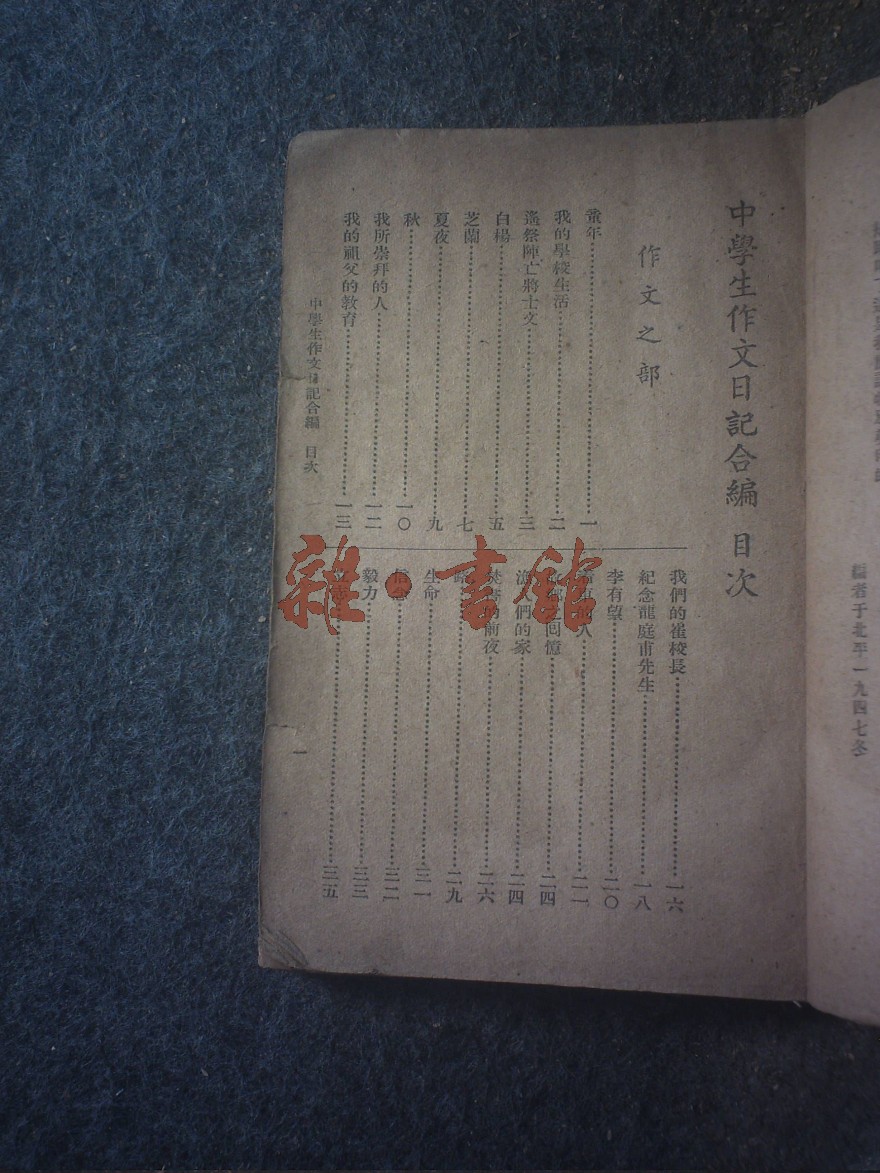 編者于北平一九四七冬
中學生作文日記合編 目次
作文之部
童年 一
我的學校生活 二
遙祭陣亡將士文 三
白楊 五
芝蘭 七
夏夜 九
秋 一〇
我所崇拜的人 一二
我的祖父的教育 一三
我們的崔校長 一六
紀念龍庭甫先生 一八
李有望 二〇
人
之回憶 二四
們的家 二四
的前夜 二六
二九
生命 三一
信念 三二
毅力 三三
三五
中學生作文日記合編 目次
一
雜·書館